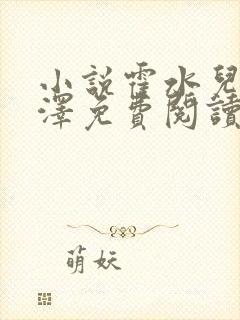 小說霍水兒
澤免費閱讀
萌妖